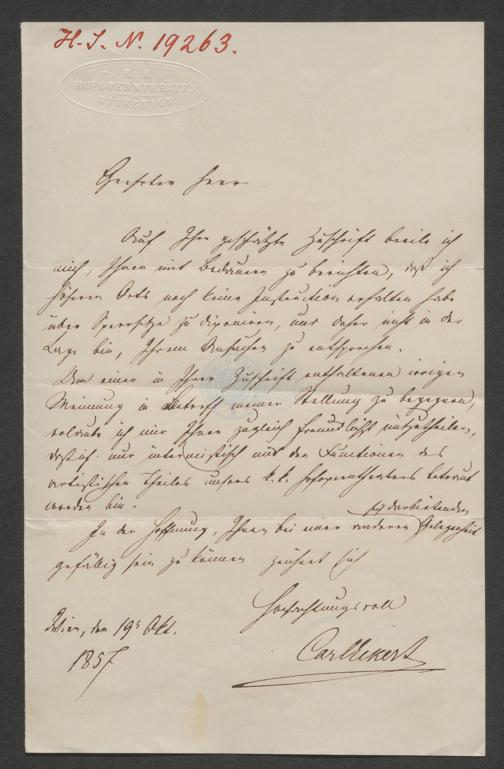 H. I. N. 19263.
K. K.
HOFOPERNTHEATER
DIRECTION
Geehrter Herr
Auf Ihre geschätzte Zuschrift beeile ich
mich, Ihnen mit Bedauern zu berichten, daß ich
höheren Orts noch keine Instruction erhalten habe
über Sperrsitze zu disponiren, und daher nicht in der
Lage bin, Ihrem Ansuchen zu entsprechen.
Um einer in Ihrer Zuschrift enthaltenen irrigen
Meinung in Betreff meiner Stellung zu begegnen,
erlaube ich mir Ihnen zugleich freundlichst mitzutheilen,
daß ich nur interimistisch mit den Functionen des
artistischen Theiles unsers k. k. Hofoperntheaters betraut
worden bin.
In der Hoffnung, Ihnen bei einer anderen sich darbietenden Gelegenheit
gefällig sein zu können zeichnet sich
Hochachtungsvoll
Wien, den 19t Okt.
1857
Carl Eckert